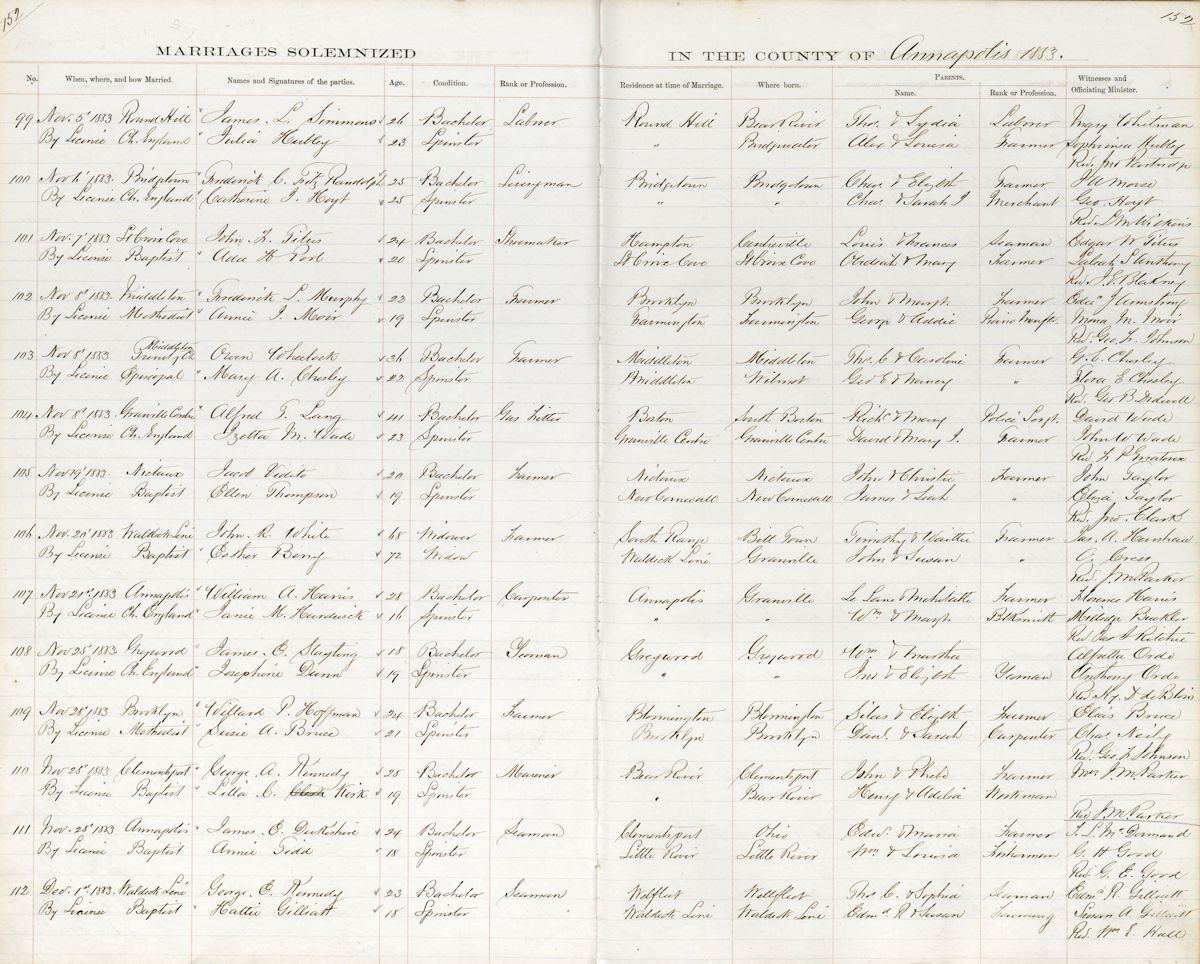 152
152
MARRIAGES SOLEMNIZED IN THE COUNTY OF Annapolis 1883.
No. When, where, and how Married. Names and Signatures of the parties. Age. Condition. Rank or Profession. Residence at time of Marriage. Where born. PARENTS. Name. Rank or Profession. Witnesses and Officiating Minister.
99 Nov. 5th 1883 Round Hill James. L. Simmons 26 Bachelor Laborer Round Hill Bear River Thos. & Lydia Laborer Mary Whitman
By License Ch. England Julia Hubley 23 Spinster " Bridgwater Alex & Louisa Farmer Sophrinia Hubley
Rev. Jno Partridge
100 Nov 6th 1883. Bridgetown Frederick C. Fitz Randolph 25 Bachelor Liveryman Bridgetown Bridgetown Chas & Elizbth Farmer Morse
By License Ch. England Catherine J. Hoyt 25 Spinster " " Chas & Sarah J Merchant Geo. Hoyt
Rev. Wilkins
101 Nov. 7th 1883 St Croix Cove John. L. Titus 24 Bachelor Shoemaker Hampton Centreville Louis & Frances Seaman Edgar W Titus
By License Baptist Ada H Poole 20 Spinster St Croix Cove St Croix Cove Obediah & Mary Farmer Anthony
Rev. Blakney
102 Nov 8th 1883. Middleton Frederick L. Murphy 23 Bachelor Farmer Brooklyn Brooklyn John & Margt. Farmer J Armstrong
By License Methodist Annie J. Moir 19 Spinster Farmington Farmington George & Addie Mona M. Moir
Rev. Geo. F. Johnson
103 Nov 8th 1883 Middleton Trinity Ch. Owen Wheelock 36 Bachelor Farmer Middleton Middleton Thos. C & Caroline Farmer G. C. Chesley
By License Episcopal Mary A. Chesley 22 Spinster Middleton Wilmot Geo E & Nancy " Flora E Chesley
Rev. Geo B Dodwell
104 Nov 8th 1883 Granville Centre Alfred T. Lang 41 Bachelor Gas Fitter Boston South Boston Richd & Mary Police Sergt. David Wade
By License Ch. England Izetta M. Wade 23 Spinster Granville Centre Granville Centre David & Mary J. Farmer John W Wade
Rev. F. P. Greatorex
105 Nov 19th 1883. Nictaux Jacob Vidito 20 Bachelor Farmer Nictaux Nictaux John & Christie Farmer John Taylor
By License Baptist Ellen Thompson 19 Spinster New Cornwall New Cornwall James & Leah " Eliza Taylor
Rev. Jno. Clark
106 Nov. 20th 1883 Waldeck Line John. R. White 68 Widower Farmer South Range Bill Town Timothy & Farmer Jas. A. Henshaw
By License Baptist Esther Berry 72 Widow Waldeck Line Granville John & Susan " Cress
Rev. J. M. Parker
107 Nov 21st 1883 Annapolis William A. Harris 28 Bachelor Carpenter Annapolis Granville Farmer Florence Harris
By License Ch. England Janie M. Hardwick 16 Spinster " " Wm & Margt. Blksmith Milledge Buckler
Rev Jas J Ritchie
108 Nov 28th 1883 Greywood James. E. 18 Bachelor Yeoman Greywood Greywood Wm & Martha Alfretta Orde
By License Ch. England Josephine Dunn 19 Spinster " " Jno & Elizbth Yeoman Anthony Orde
Rev. Hy. D deBlois
109 Nov 28th 1883 Brooklyn Willard P. Hoffman 24 Bachelor Farmer Bloomington Bloomington Silas & Elizbth Farmer Elias Bruce
By License Methodist Susie A. Bruce 21 Spinster Brooklyn Brooklyn Danl. & Sarah Carpenter Chas Neily
Rev. Geo. F Johnson
110 Nov 28th 1883 Clementsport George. A. Kennedy 28 Bachelor Mariner Bear River Clementsport John & Phebe Farmer Mrs J. M. Parker
By License Baptist Lilla C. Kirk 19 Spinster " Bear River Henry & Adelia Workman
Rev J. M Parker
111 Nov. 28th 1883 Annapolis James. E. Berkshire 24 Bachelor Seaman Clementsport Ohio Edw. & Maria Farmer S. L. McDormand
By License Baptist Annie Todd 18 Spinster Little River Little River Wm. & Louisa Fisherman G. H Good
Rev. G. E. Good
112 Dec. 1st 1883. Waldeck Line George. E. Kennedy 23 Bachelor Seaman Wellfleet Wellfleet Thos. C. & Sophia Seaman Edmd. R. Gilliatt
By License Baptist Hattie Gilliatt 18 Spinster Waldeck Line Waldeck Line Edmd R & Susan Farming Susan A. Gilliatt
Rev. Wm E. Hall